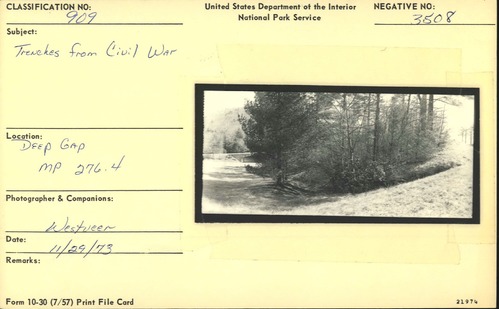 CLASSIFICATION NO: United States Department of the Interior NEGATIVE NO:
909 National Park Service 3508
Subject:
Trenches from Civil War
Location:
Deep Gap
MP 276.4
Photographer & Companions:
Westveer
Date:
11/29/73
Remarks:
Form 10-30 (7/57) Print File Card 21974